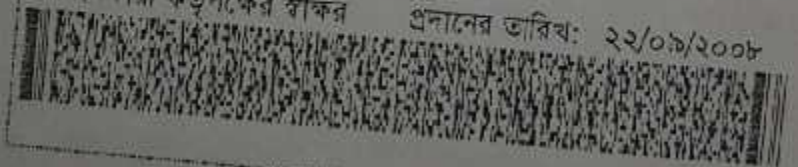 কর্তৃপক্ষের স্বাক্ষর প্রদানের তারিখ: ২২/০৯/২০০৮